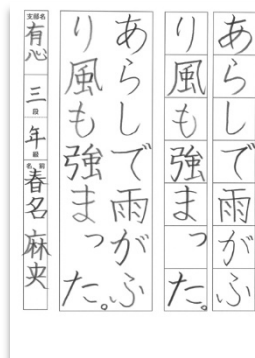 あらしで雨がふ
り風も強まった。
あらしで雨がふ
り風も強まった。
支部名
有心
三
段
年
級
名前
春名麻央